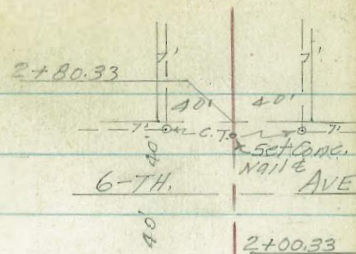 7' 7'
2+80.33
40' 40'
7' C.T. 7'
40' Set Conc.
Nail &
6-TH. AVE
40'
2+00.33